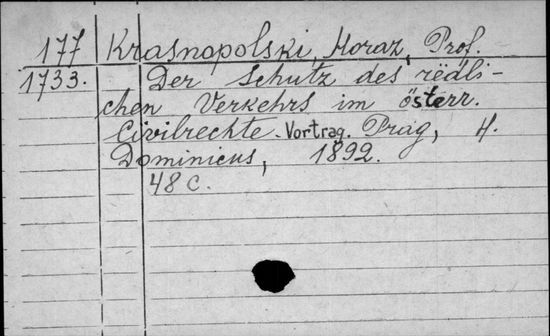 177 Krasnopolski, Horaz, Prof.
1733. Der Schutz des rëdli-
chen Verkehrs im österr.
Civilrechte. Vortrag. Prag, H.
Dominicus, 1892.
48 c.